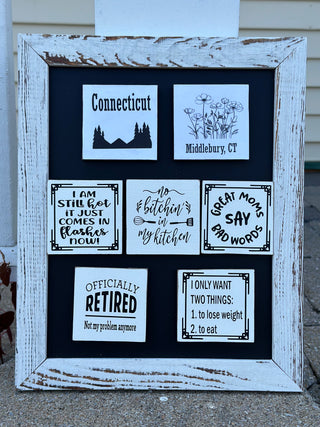 Connecticut
Middlebury, CT
I AM
STILL HOT
IT JUST
COMES IN
FLASHES
NOW!
no
bitchin'
in
my kitchen
GREAT MOMS
SAY
BAD WORDS
OFFICIALLY
RETIRED
Not my problem anymore
I ONLY WANT
TWO THINGS:
1. to lose weight
2. to eat